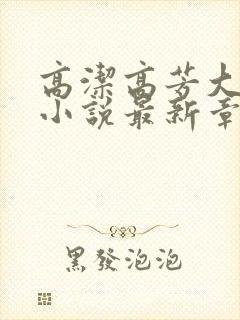 高潔高芳大
小說最新章
黑發泡泡